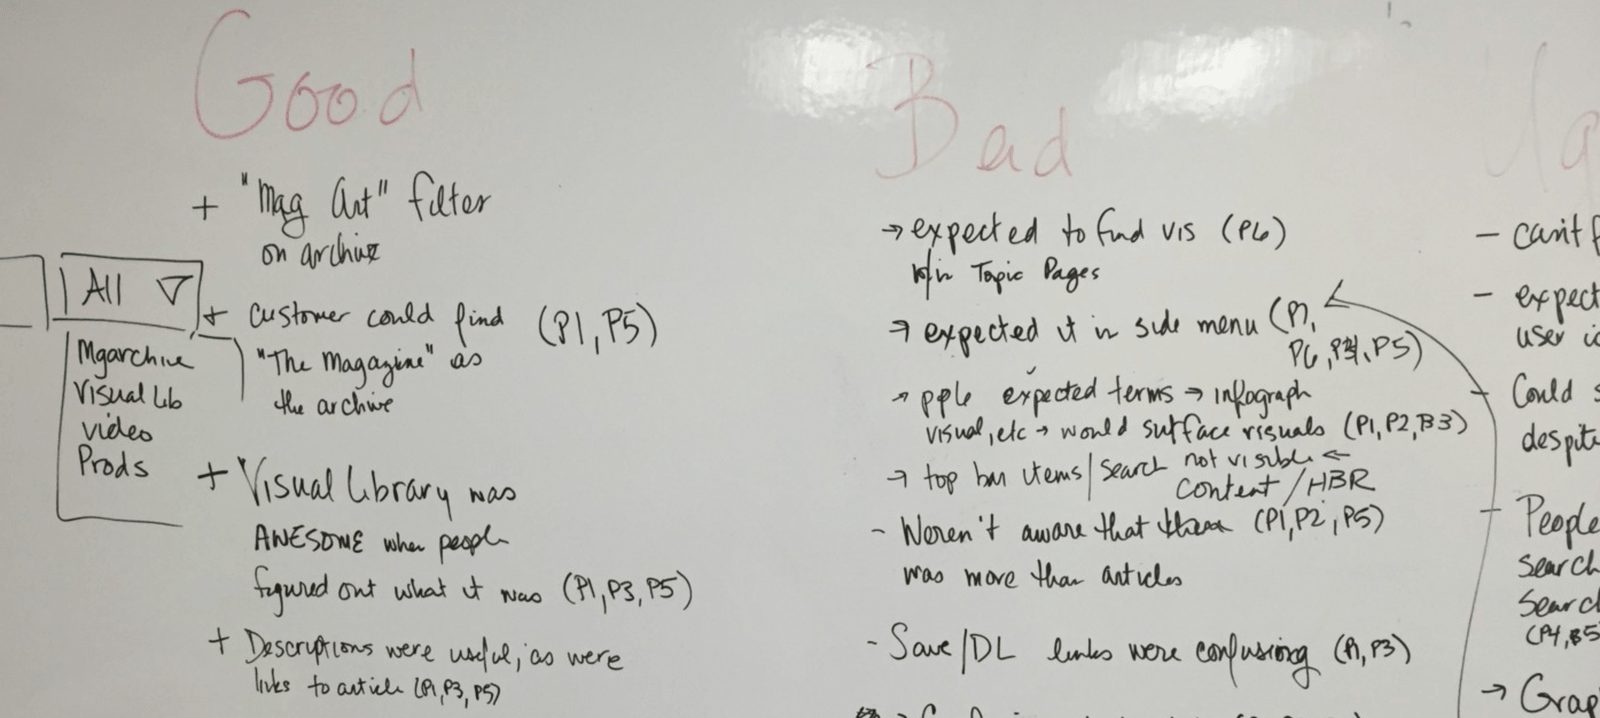 Good
+ "Mag Art" filter
on archive
All ▽
Mgarchive
Visual Lib
video
Prods
+ Customer could find (P1, P5)
"The Magazine" as
the archive
+ Visual Library was
AWESOME when people
figured out what it was (P1, P3, P5)
+ Descriptions were useful, as were
links to article (P1, P3, P5)
Bad
→ expected to find vis (P6)
w/in Topic Pages
→ expected it in side menu (P1,
P6, P5)
→ pple expected terms → infograph
visual, etc → would surface visuals (P1, P2, P3)
→ top bar items/search not visible ←
content/HBR
- Weren't aware that there (P1, P2, P5)
was more than articles
- Save/DL links were confusing (P1, P3)
- can't f
- expect
user ic
- Could s
despite
- People
search
Search
(P4, P5
→ Grap